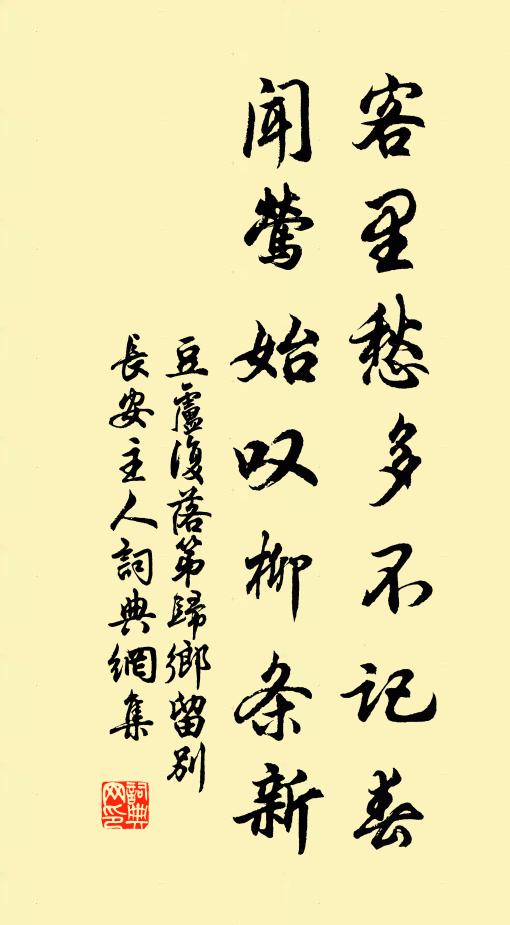 客里愁多不记春
闻莺始叹柳条新
豆盧復落第歸鄉留別
長安主人詞典網集
詞典网印